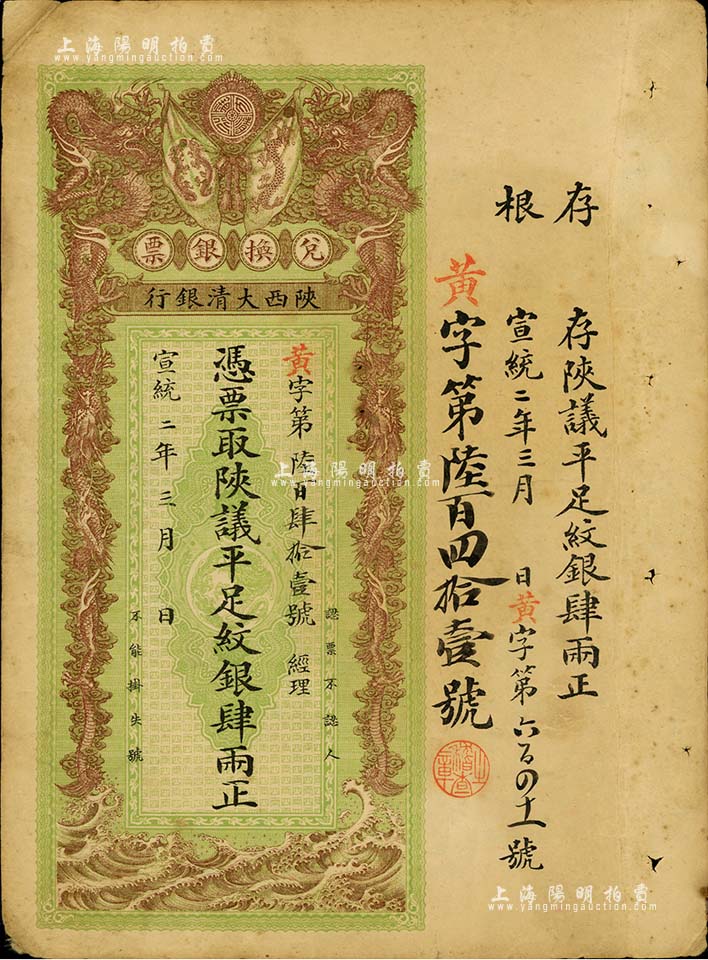 上海陽明拍賣
www.yangmingauction.com
存根
存陝議平足紋銀肆兩正
宣統二年三月 日黃字第六百四十一號
黃字第陸百四拾壹號
兌換銀票
陝西大清銀行
認票不認人
黃字第陸百肆拾壹號 經理
憑票取陝議平足紋銀肆兩正
宣統二年三月 日
不能掛失號
上海陽明拍賣
www.yangmingauction.com
上海陽明拍賣
www.yangmingauction.com